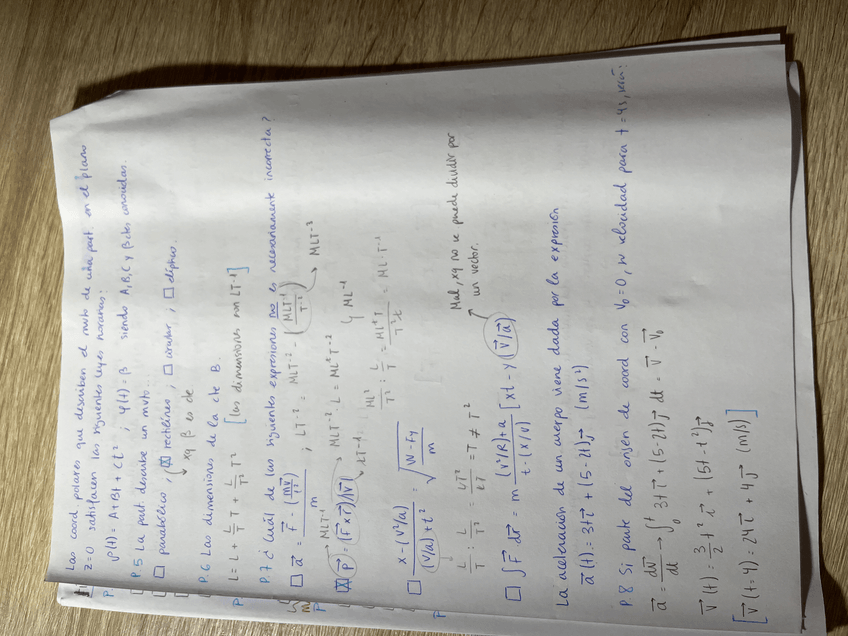 Las coord polares que describen el mvto de una part. en el plano
z=0 satisfacen las siguientes leyes horarias:
ρ(t) = A+Bt + Ct² ; φ(t) = β siendo A, B, C y β ctes conocidas.
P.5 La part. describe un mvto:
□ parabólico, ☒ rectilíneo, □ circular, □ elíptico.
↳ xq β es cte
P.6 Las dimensiones de la cte B.
L = L + L/T T + L/T² T² [las dimensiones son LT⁻¹]
P.7 ¿Cuál de las siguientes expresiones no es necesariamente incorrecta?
□ a⃗ = F⃗ · (mv/t) / m ; LT⁻² = MLT⁻² - (MLT⁻¹/T⁻¹) → MLT⁻²
☒ P⃗ = (F⃗ x r⃗)/|v⃗| → MLT⁻² · L = ML²T⁻² } ML⁻¹
→ MLT⁻¹
→ LT⁻¹ : ML²/T² : L/T = ML²T/T²L = ML·T⁻¹
□ x - (v²/a) / (v/a) + t² = √(W - Fy / m)
L/T : L/T² = LT²/LT = T ≠ T²
Mal, xq no se puede dividir por
un vector.
□ ∫ F⃗ dr⃗ = m (v²/R) + a / t - (x/v) [xt - y (v⃗/a⃗)]
La aceleración de un cuerpo viene dada por la expresión
a⃗(t) = 3t i⃗ + (5-2t) j⃗ (m/s²)
P.8 Si parte del origen de coord con V₀ = 0, su velocidad para t = 4s, será:
a⃗ = dv⃗/dt → ∫₀ᵗ 3t i⃗ + (5-2t) j⃗ dt = v⃗ - v⃗₀
v⃗(t) = 3/2 t² i⃗ + (5t - t²) j⃗
[v⃗(t=4) = 24 i⃗ + 4 j⃗ (m/s)]